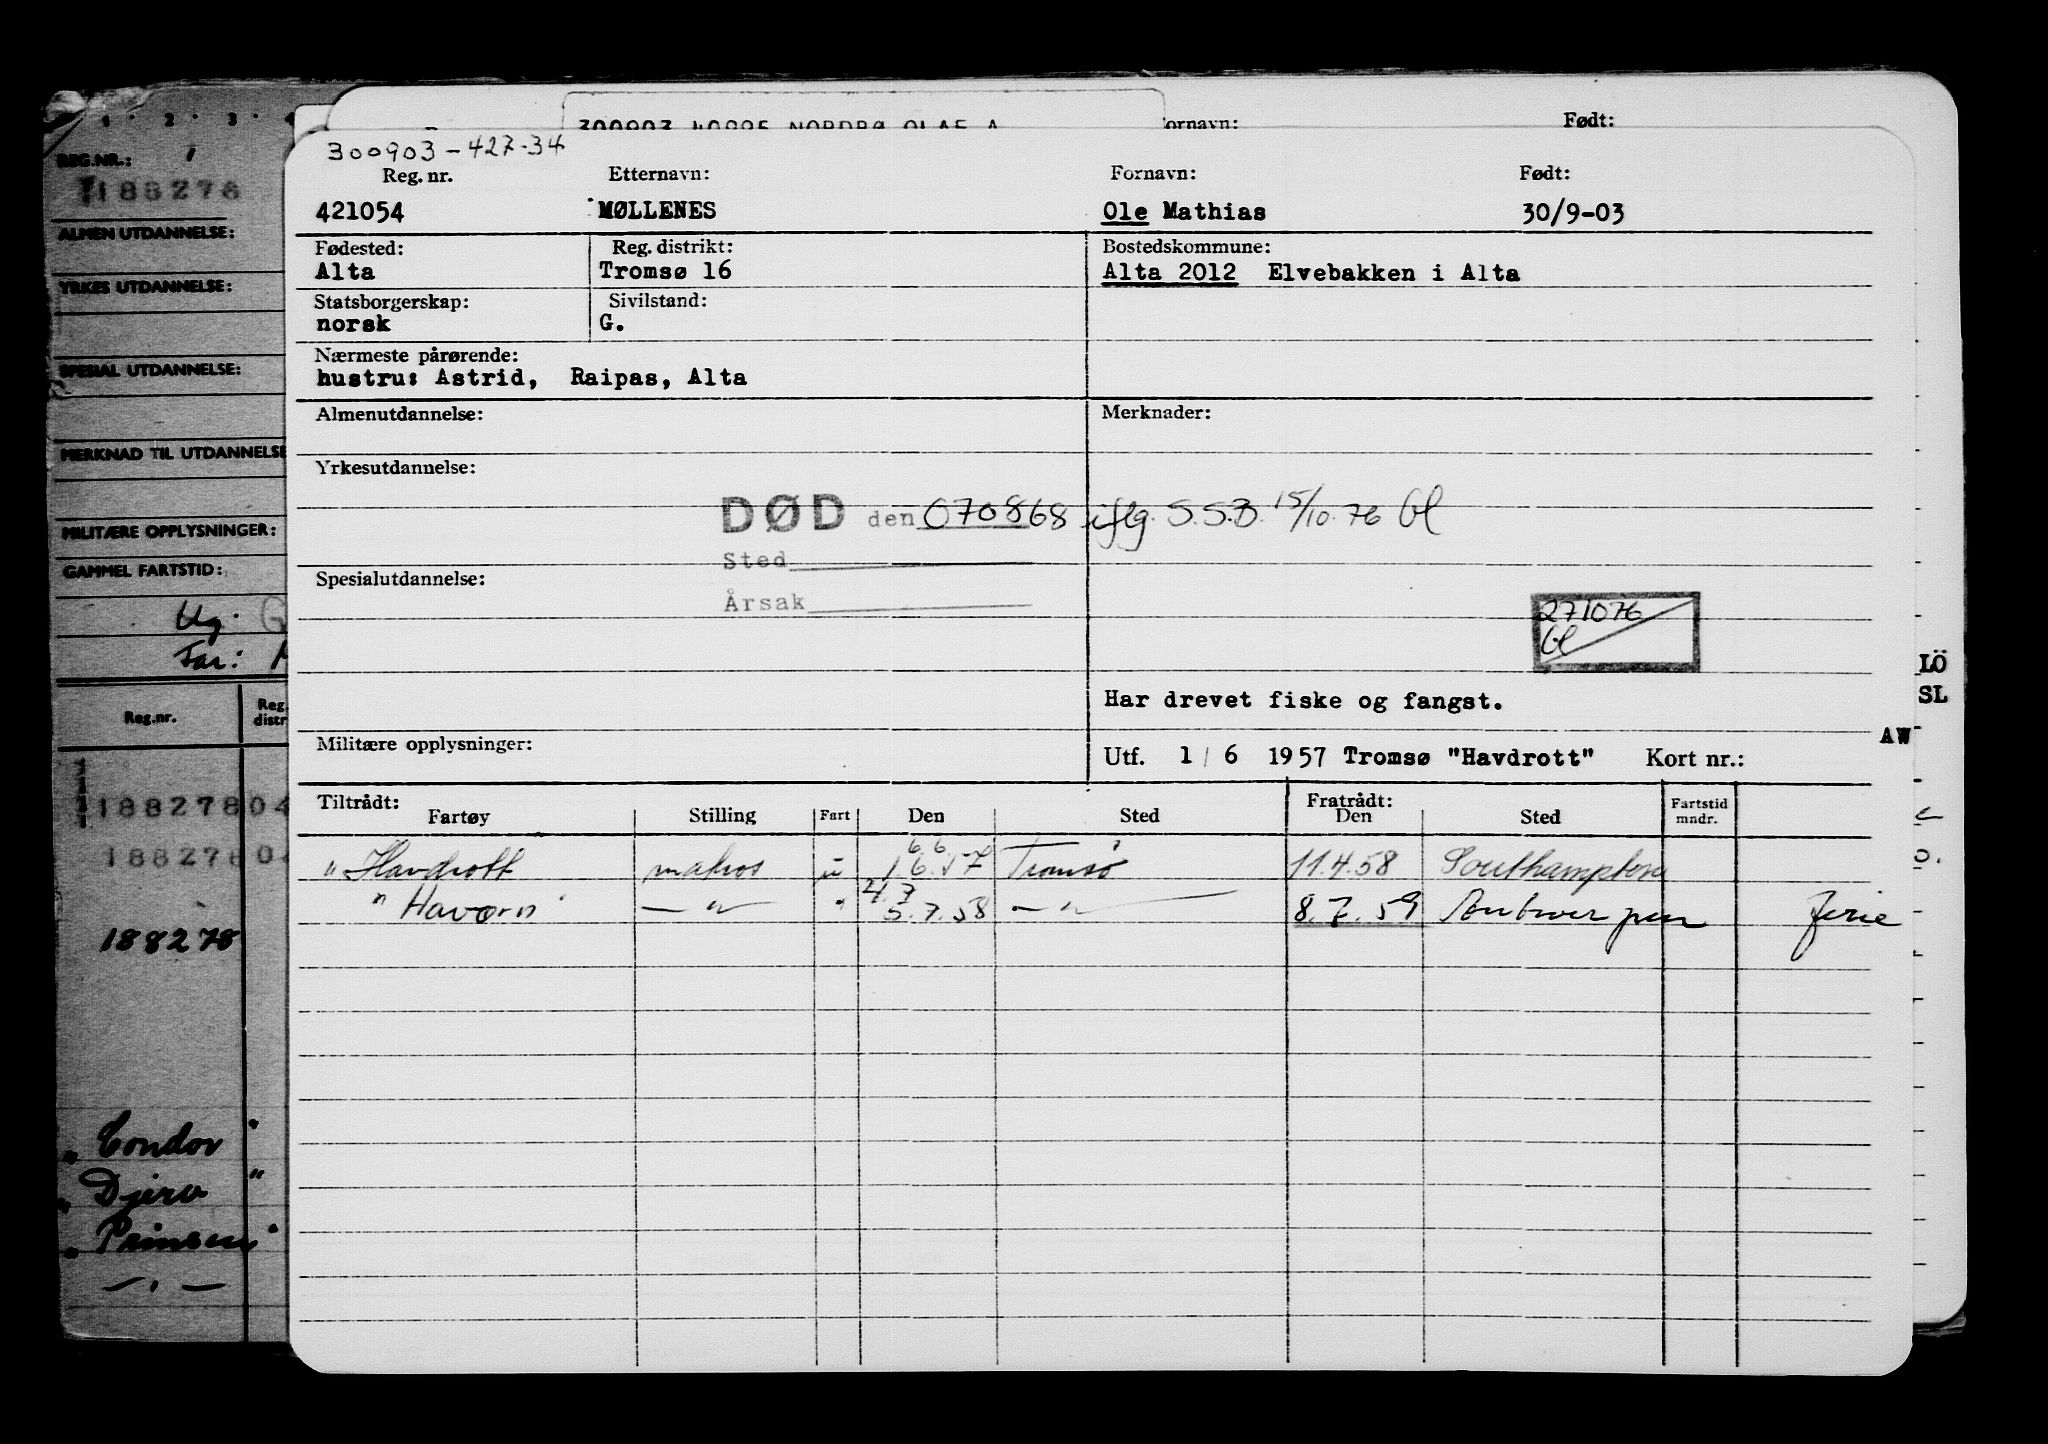 1 · 2 · 3 · 4
REG.NR.:
188278
ALMEN UTDANNELSE:
YRKES UTDANNELSE:
SPESIAL UTDANNELSE:
MERKNAD TIL UTDANNELSE
MILITÆRE OPPLYSNINGER:
GAMMEL FARTSTID:
Ug. G
Far: M
Reg.nr. Reg. distr
188278 04
188278 0
188278
"Condor"
"Djerv"
"Prinsen"
— " —
300903 40995 NORDBØ OLAF A
ornavn: Født:
300903-427-34
Reg. nr. Etternavn: Fornavn: Født:
421054 MØLLENES Ole Mathias 30/9-03
Fødested: Reg. distrikt: Bostedskommune:
Alta Tromsø 16 Alta 2012 Elvebakken i Alta
Statsborgerskap: Sivilstand:
norsk G.
Nærmeste pårørende:
hustru: Astrid, Raipas, Alta
Almenutdannelse: Merknader:
Yrkesutdannelse:
DØD den 070868 iflg. S.S.B. 15/10.76 bl
Sted
Spesialutdannelse:
Årsak
271076
bl
Har drevet fiske og fangst.
Militære opplysninger:
Utf. 1/6 1957 Tromsø "Havdrott" Kort nr.:
Tiltrådt: Fratrådt: Fartstid mndr.
Fartøy Stilling Fart Den Sted Den Sted
6.6
"Havdrott matros u 1.6.57 Tromsø 11.4.58 Southampton
4.7
"Havørn" — " — " 5.7.58 — " — 8.7.59 Antwerpen Ferie
LÖ
SL
AW